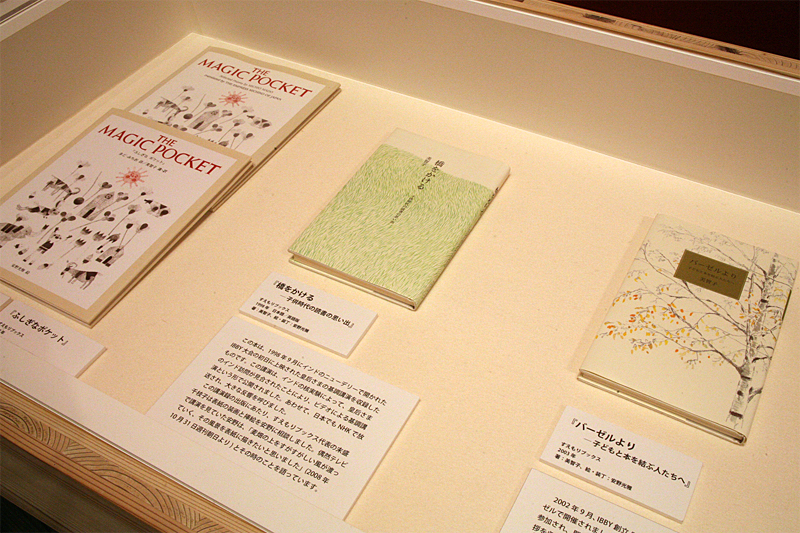 THE
MAGIC POCKET
THE
MAGIC POCKET
『ふしぎなポケット』
すえもりブックス
橋をかける
『橋をかける
―子供時代の読書の思い出』
すえもりブックス
1998年 日本版、英語版
著:美智子、絵・装丁:安野光雅
この本は、1998年9月にインドのニューデリーで開かれた
IBBY大会の初日に上映された皇后さまの基調講演を収録した
ものです。この講演は、インドの核実験によって、皇后さま
のインド訪問が見合されたことにより、ビデオによる基調講
演という形で公開されました。あわせて、日本でもNHKで放
送され、大きな反響を呼びました。
この講演録の出版にあたり、すえもりブックス代表の末盛
千枝子は表紙の絵画と挿絵を安野に相談しました。偶然テレビ
で講演を見ていた安野は、「麦畑の上をすがすがしい風が渡っ
ていく、その風景を表紙に描きたいと思いました」(2008年
10月31日週刊朝日より)とその時のことを語っています。
バーゼルより
『バーゼルより
―子どもと本を結ぶ人たちへ』
すえもりブックス
2003年
著:美智子、絵・装丁:安野光雅
2002年9月、IBBY創立
ゼルで開催されまし
参加され、
拶を